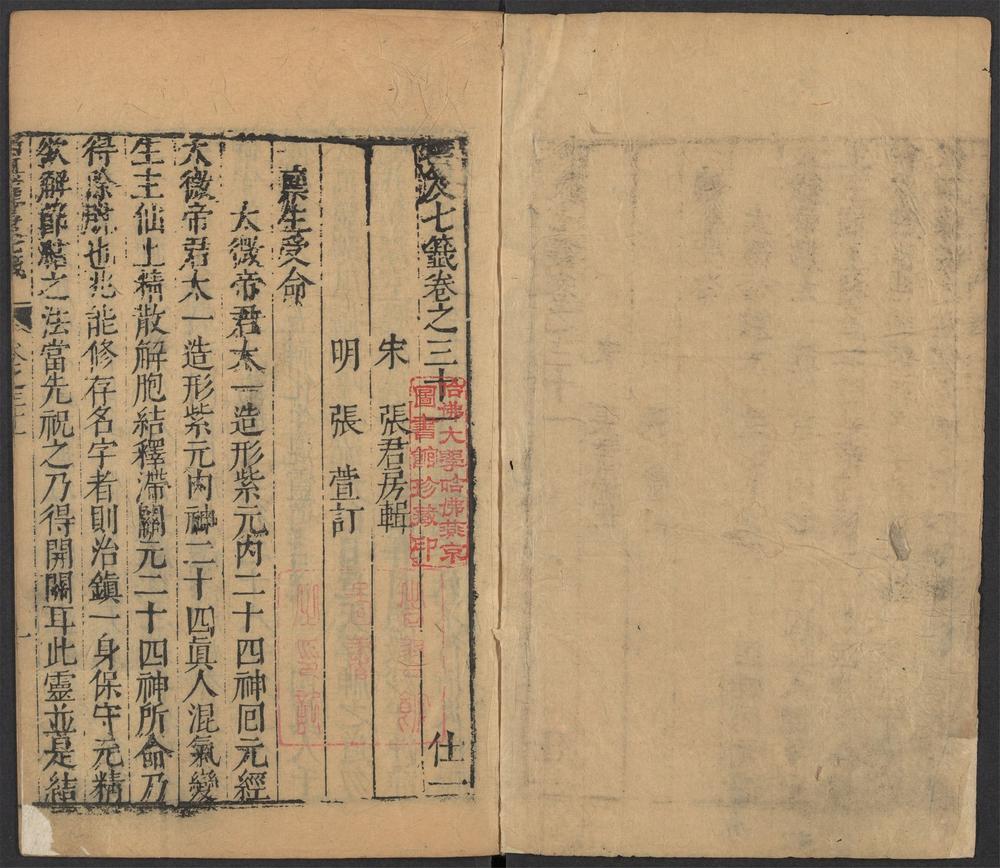 雲笈七籤卷之三十一 仕一
宋 張君房輯
明 張 萱訂
稟生受命
太微帝君太一造形紫元内二十四神囘元經
太微帝君太一造形紫元内神二十四眞人混氣變
生主仙上精散解胞結釋滯關元二十四神所命乃
得除也兆能修存名字者則治鎮一身保守元精
欲解節結之法當先祝之乃得開關耳此靈並是結
哈佛大學哈佛燕京
圖書館珍藏印